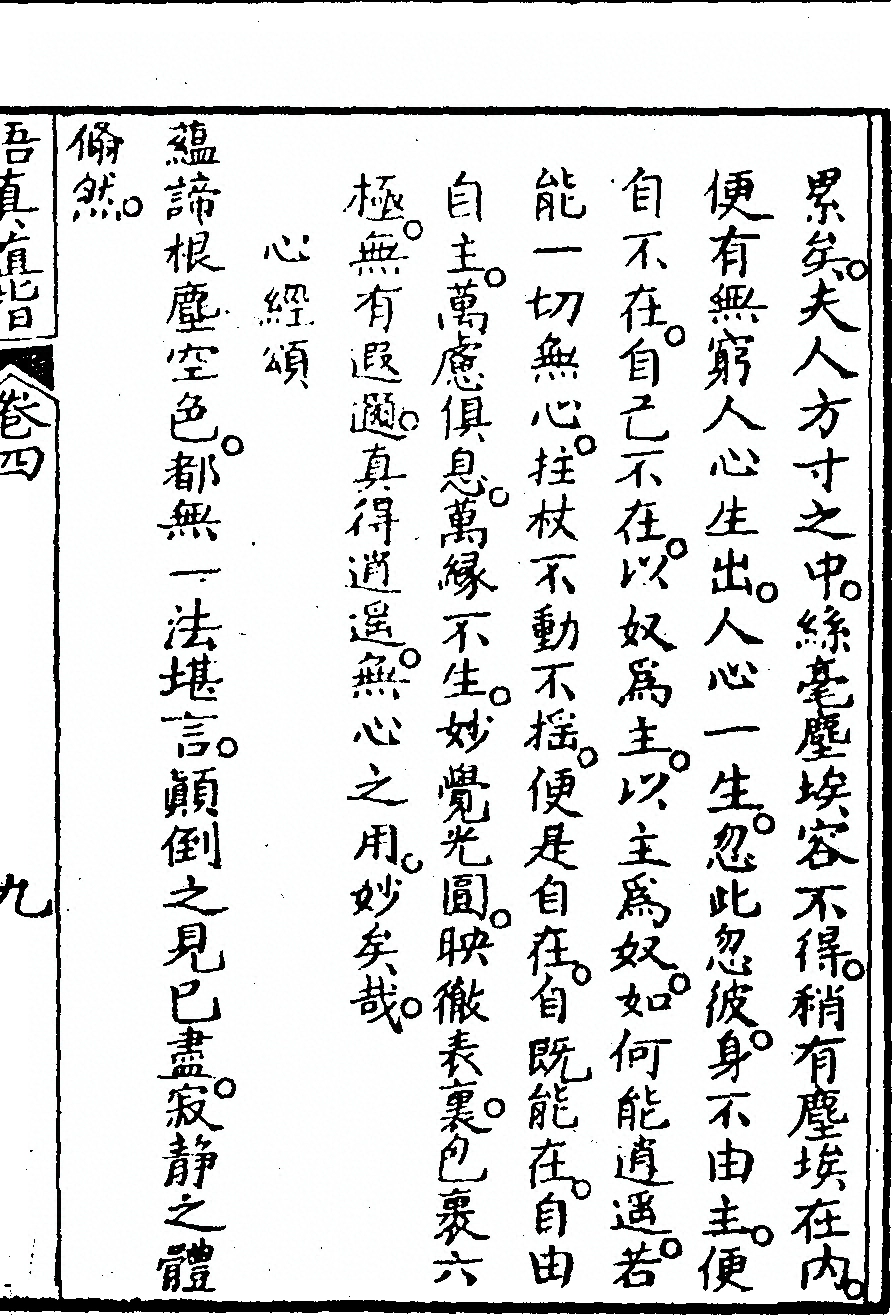 累矣。夫人方寸之中。絲毫塵埃容不得。稍有塵埃在內。
便有無窮人心生出。人心一生。忽此忽彼。身不由主。便
自不在。自己不在。以奴爲主。以主爲奴。如何能逍遥。若
能一切無心。拄杖不動不揺。便是自在。自既能在。自由
自主。萬慮俱息。萬緣不生。妙覺光圓。映徹表裏。包裹六
極。無有遐邇。真得逍遥。無心之用。妙矣哉。
心經頌
蘊諦根塵空色。都無一法堪言。顚倒之見已盡。寂静之體
翛然。
悟真直指
卷四
九